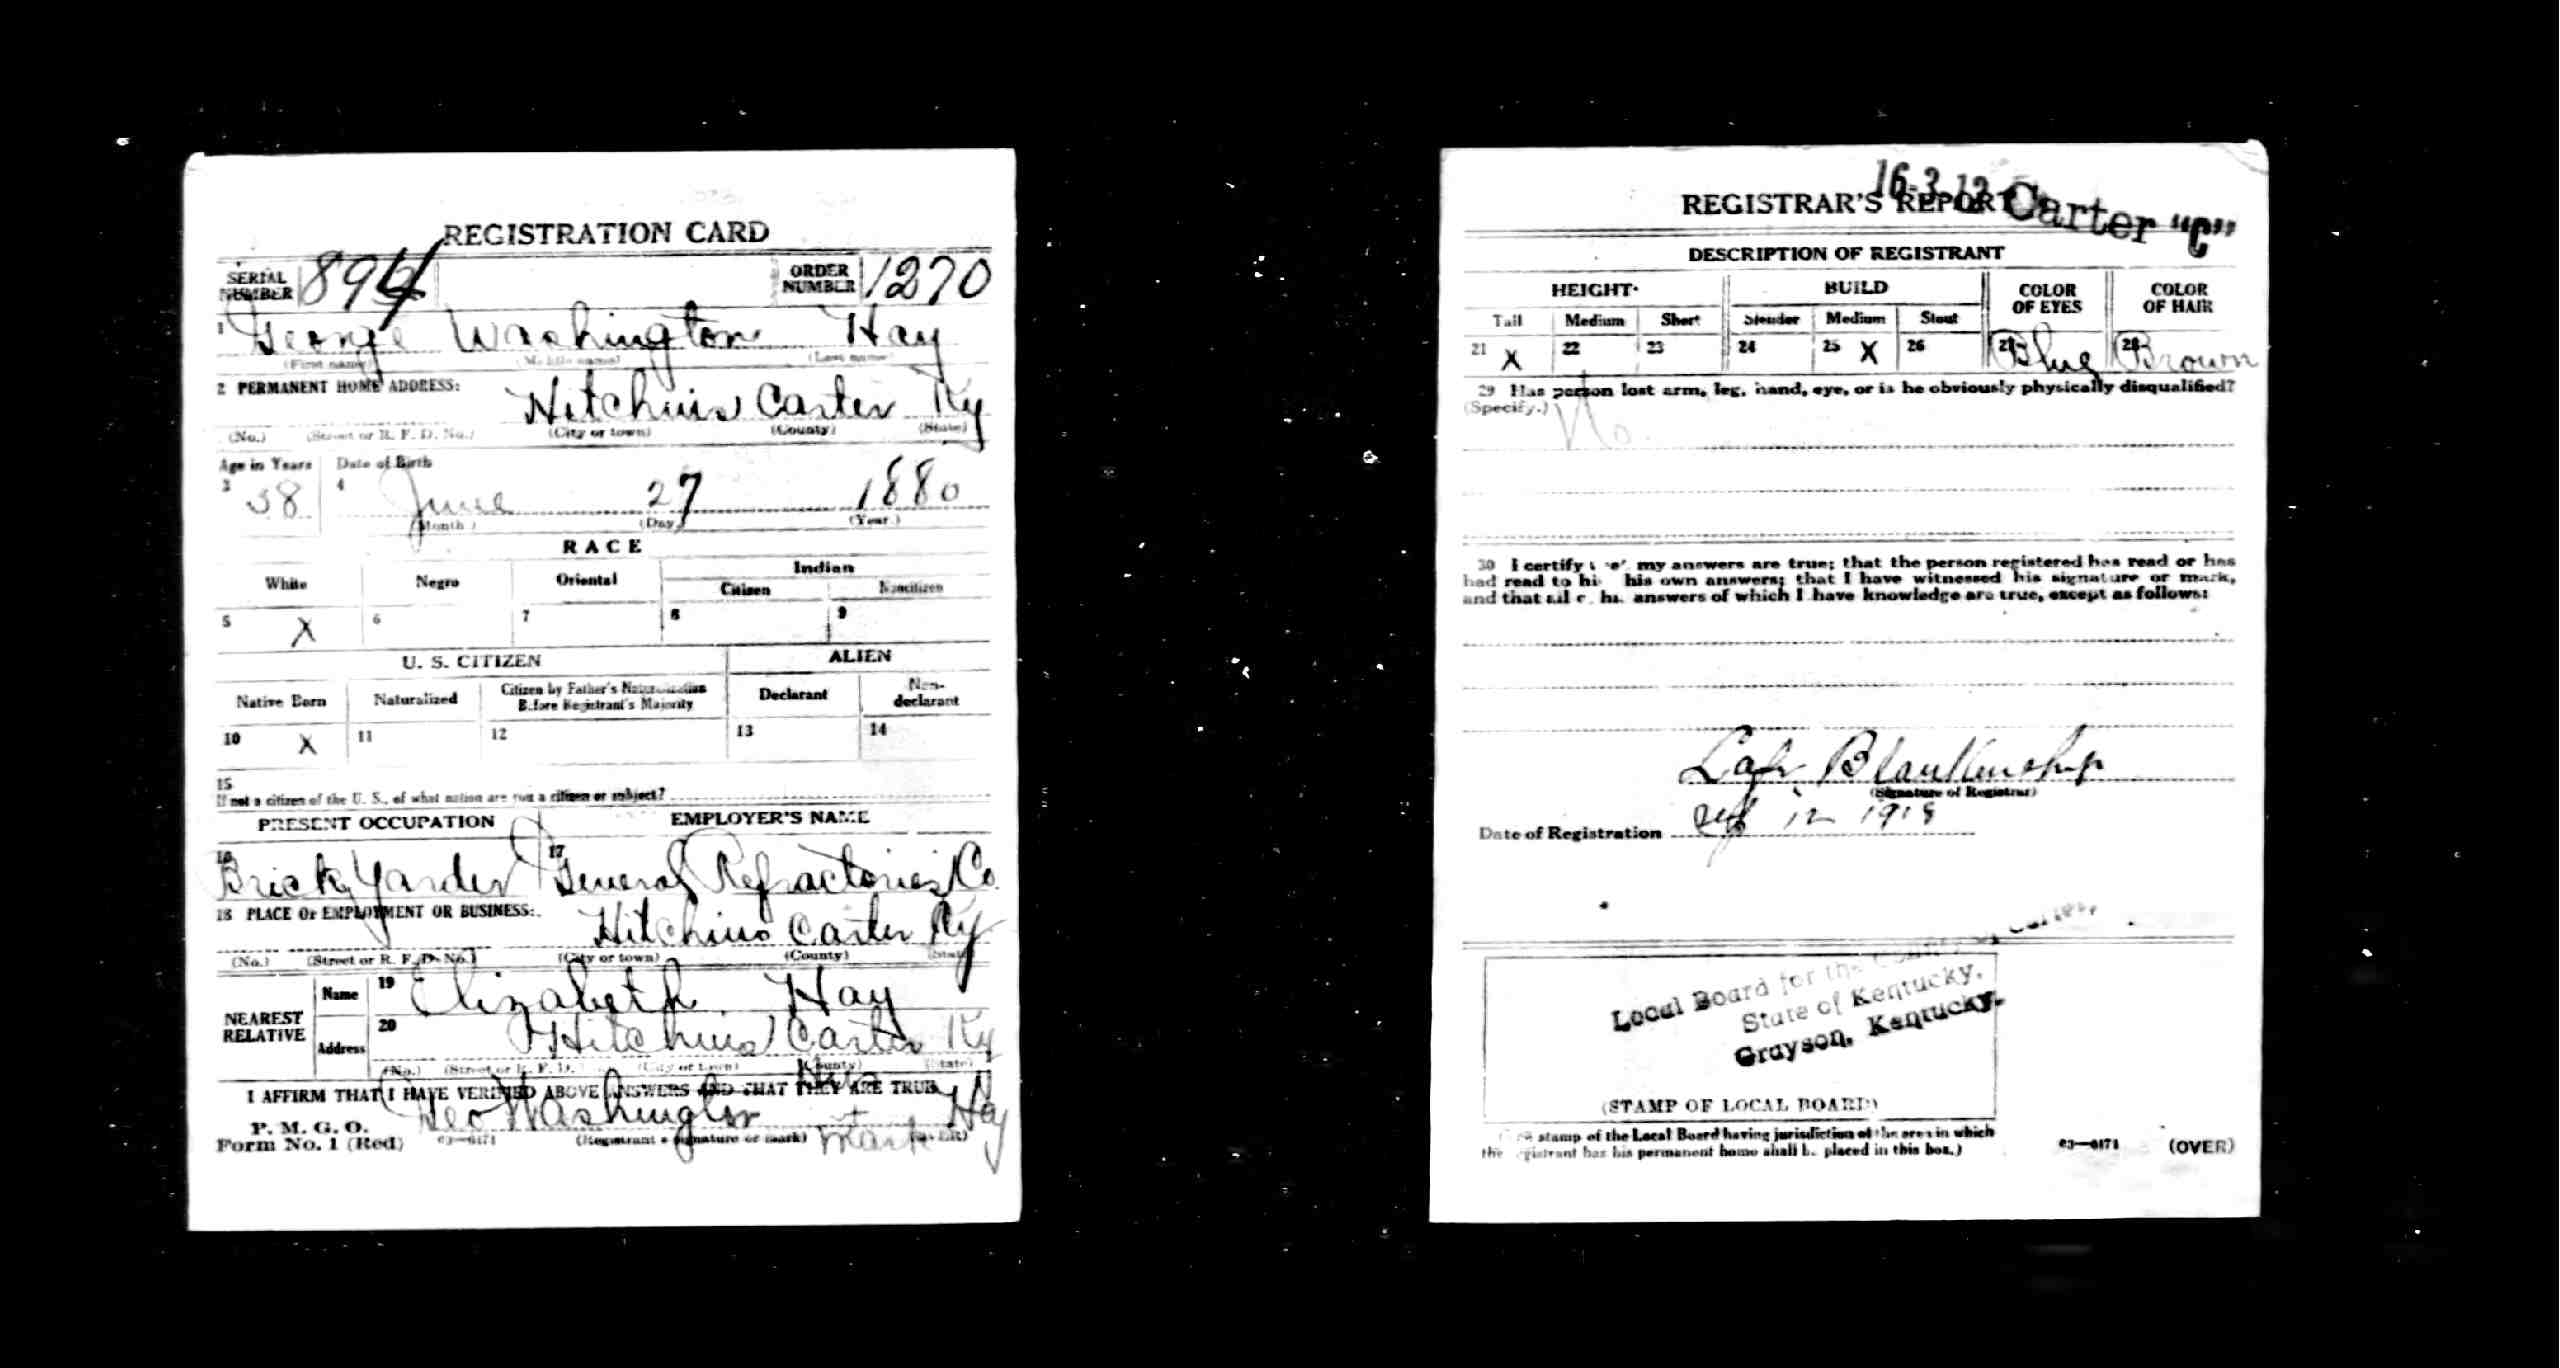 REGISTRATION CARD
SERIAL NUMBER 894 ORDER NUMBER 1270
1 George Washington Hay
(First name) (Middle name) (Last name)
2 PERMANENT HOME ADDRESS:
Hitchins Carter Ky
(No.) (Street or R. F. D. No.) (City or town) (County) (State)
Age in Years Date of Birth
3 38 4 June 27 1880
(Month.) (Day.) (Year.)
RACE
White Negro Oriental Indian
Citizen Noncitizen
5 X 6 7 8 9
U. S. CITIZEN ALIEN
Native Born Naturalized Citizen by Father's Naturalization Before Registrant's Majority Declarant Non-declarant
10 X 11 12 13 14
15
If not a citizen of the U. S., of what nation are you a citizen or subject?
PRESENT OCCUPATION EMPLOYER'S NAME
16 Brick Yarder 17 General Refractories Co
18 PLACE OF EMPLOYMENT OR BUSINESS:
Hitchins Carter Ky
(No.) (Street or R. F. D. No.) (City or town) (County) (State)
NEAREST RELATIVE
Name 19 Elizabeth Hay
Address 20 Hitchins Carter Ky
(No.) (Street or R. F. D. (City or town) (County) (State)
I AFFIRM THAT I HAVE VERIFIED ABOVE ANSWERS AND THAT THEY ARE TRUE
P. M. G. O.
Form No. 1 (Red) 03—6171 (Registrant's signature or mark) (OVER)
Geo Washington his X mark Hay
16-3-12 Carter "C"
REGISTRAR'S REPORT
DESCRIPTION OF REGISTRANT
HEIGHT BUILD COLOR OF EYES COLOR OF HAIR
Tall Medium Short Slender Medium Stout
21 X 22 23 24 25 X 26 27 Blue 28 Brown
29 Has person lost arm, leg, hand, eye, or is he obviously physically disqualified?
(Specify.) No.
30 I certify my answers are true; that the person registered has read or has
had read to his own answers; that I have witnessed his signature or mark,
and that all of his answers of which I have knowledge are true, except as follows:
Blankenship
(Signature of Registrar)
Date of Registration Sep 12 1918
Local Board for the County of Carter,
State of Kentucky,
Grayson, Kentucky.
(STAMP OF LOCAL BOARD)
stamp of the Local Board having jurisdiction of the area in which
the registrant has his permanent home shall be placed in this box.)
03—6171 (OVER)